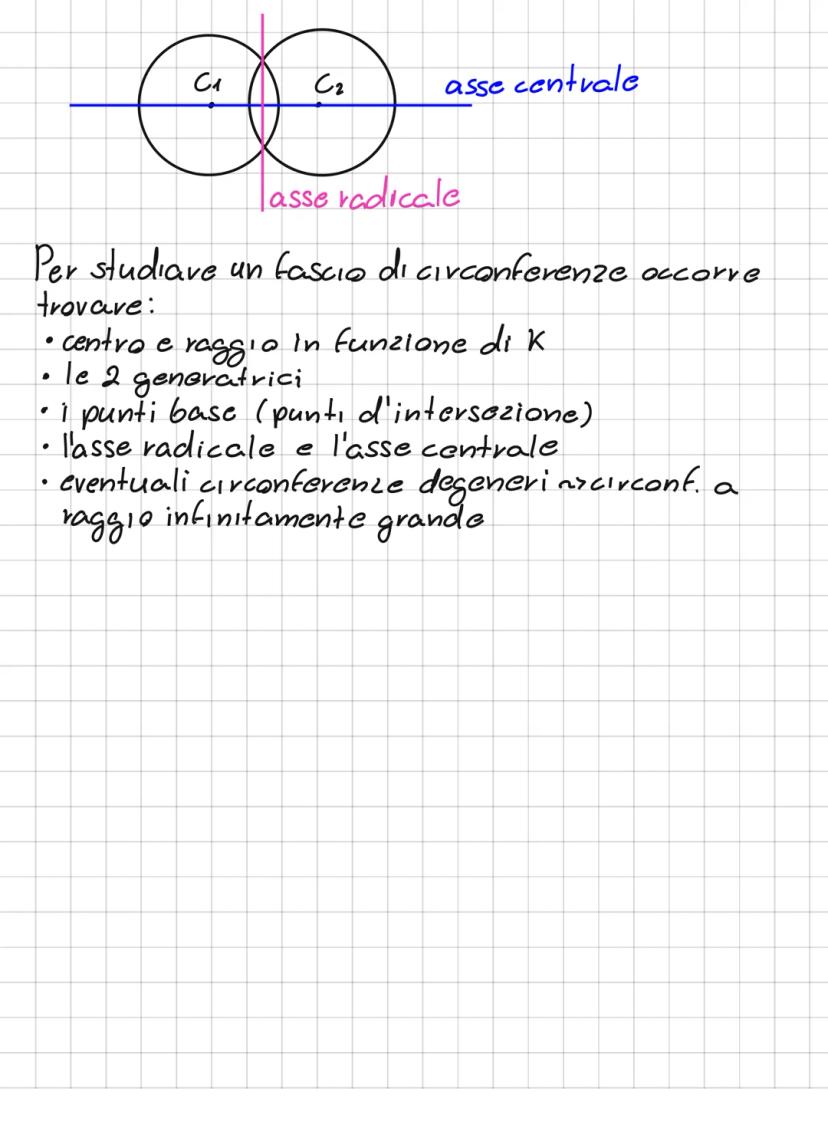 C1
C2
asse centrale
asse radicale
Per studiare un fascio di circonferenze occorre
trovare:
• centro e raggio in funzione di K
• le 2 generatrici
• i punti base (punti d'intersezione)
• l'asse radicale e l'asse centrale
• eventuali circonferenze degeneri ~> circonf. a
raggio infinitamente grande